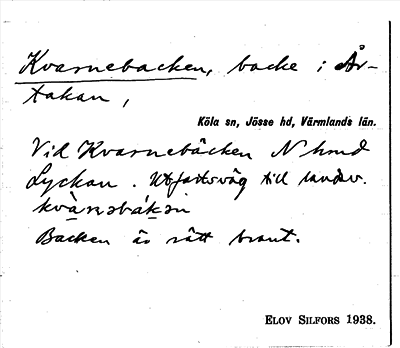 Kvarnebacken, backe i År-
takan,
Köla sn, Jösse hd, Värmlands län.
Vid Kvarnebäcken N hmd
Lyckan. Utfartsväg till landsv.
kvà̱ṇəbákən
Backen är rätt brant.
ELOV SILFORS 1938.